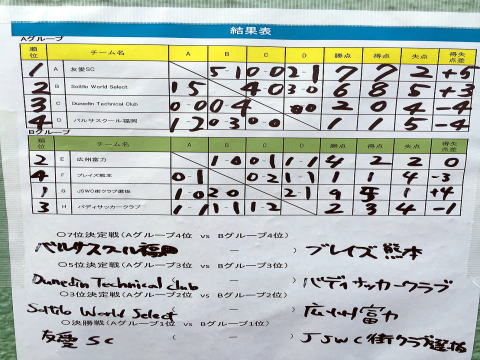 結果表
Aグループ
順位 チーム名 A B C D 勝点 得点 失点 得失点差
1 A 友愛SC 5-1 0-0 2-1 7 7 2 +5
2 B Soltilo World Select 1 5 4-0 3-0 6 8 5 +3
3 C Dunedin Technical Club 0-0 0-4 00 2 0 4 -4
4 D バルサスクール福岡 1-2 0-3 0-0 1 1 5 -4
Bグループ
順位 チーム名 E F G H 勝点 得点 失点 得失点差
2 E 広州富力 1-0 0-1 1-1 4 2 2 0
4 F ブレイズ熊本 0-1 0-2 1-1 1 1 4 -3
1 G JSWC街クラブ選抜 1-0 2 0 2-1 9 5 1 +4
3 H バディサッカークラブ 1-1 1-1 1-2 2 3 4 -1
○7位決定戦(Aグループ4位 vs Bグループ4位)
バルサスクール福岡 － ) ブレイズ熊本
○5位決定戦(Aグループ3位 vs Bグループ3位)
Dunedin Technical Club － ) バディサッカークラブ
○3位決定戦(Aグループ2位 vs Bグループ2位)
Soltilo World Select － ) 広州富力
○決勝戦(Aグループ1位 vs Bグループ1位)
友愛 SC － ) JSWC街クラブ選抜